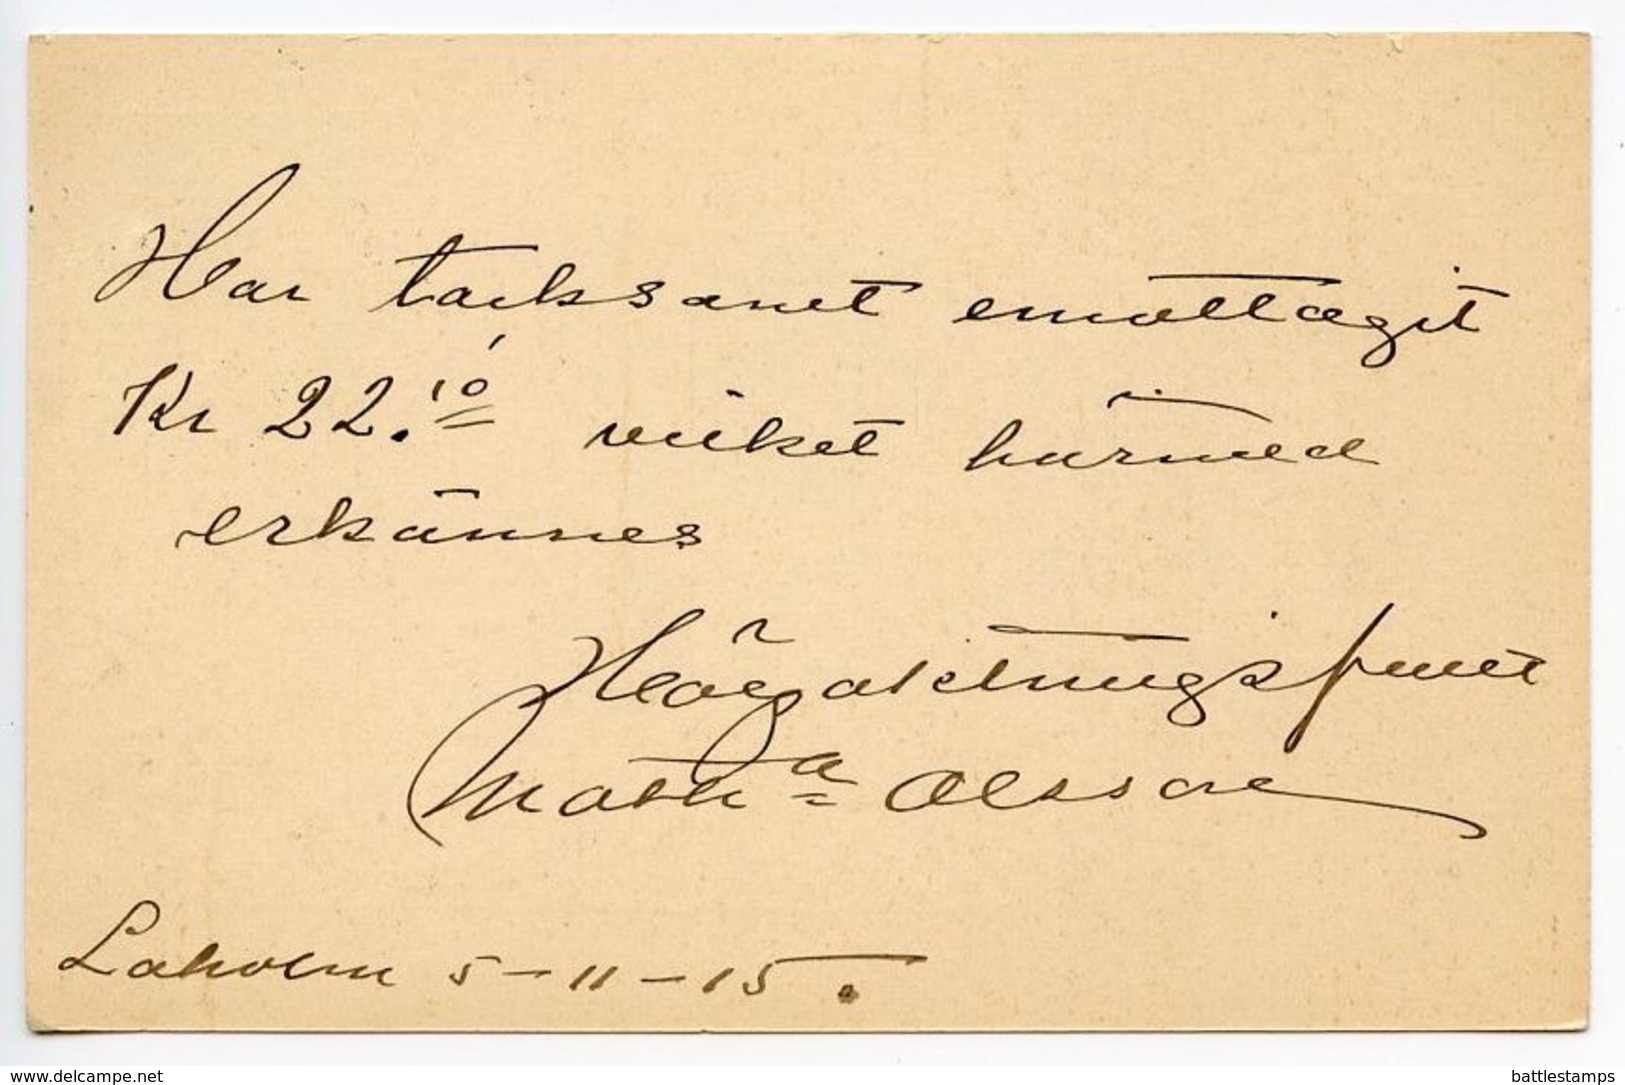 Har tacksamt emottagit
Kr 22.10 vilket härmed
erkännes
Högaktningsfullt
Math a Olsson
Laholm 5-11-15.
delcampe.net
battlestamps